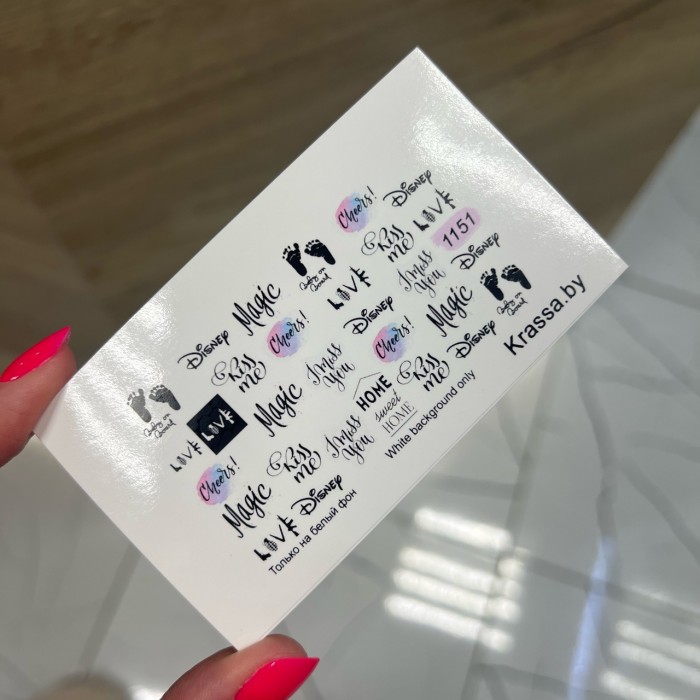 Baby on Board
Cheers!
Disney
Disney
Magic
LOVE
Kiss me
LOVE
1151
Baby on Board
Kiss me
Cheers!
Disney
I miss You
Disney
LOVE
LOVE
Magic
I miss You
Cheers!
Magic
Baby on Board
Cheers!
Kiss me
I miss You
HOME
sweet
HOME
Kiss me
Disney
Magic
LOVE
Disney
Только на белый фон
White background only
Krassa.by